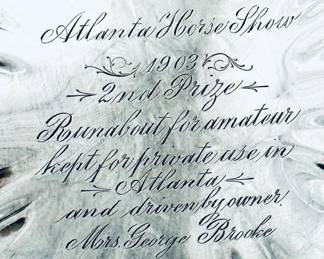 Atlanta Horse Show
1903
2nd Prize
Runabout for amateur
kept for private use in
Atlanta
and driven by owner.
Mrs. George Brooke